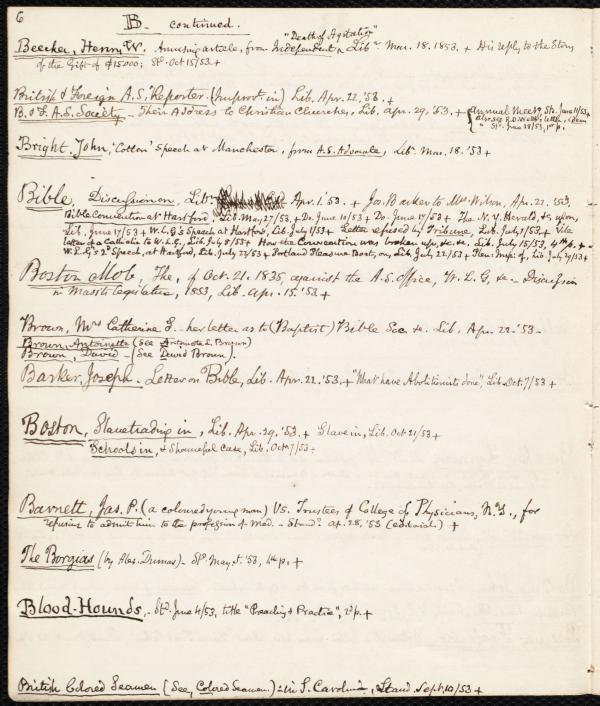 6
B. continued.
"Death of Agitation"
Beecher, Henry W. Amusing article, from Independent, Libr. Mar. 18. 1853. + His reply to the Story
of the Gift of $15000; Std. Oct 15/53 +
British & Foreign A.S. Reporter. (Improvt. in) Lib. Apr. 22, '53. +
B. & F. A. S. Society - Their Address to Christian Churches, Lib. Apr. 29, '53. + { Annual Meetg, Std. June 11/53 +
also see R.D. Webb's letter, idem
" Std. June 18/53, 1st p.
Bright, John, 'Cotton' Speech at Manchester, from A.S. Advocate, Libr. Mar. 18. '53 +
Bible, Discussion on, Libr. Apr. 1. '53. + Jos. Barker to Mr. Wilson, Apr. 22. '53.
Bible Convention at Hartford, Lib. May 27/53, + Do. June 10/53 + Do. June 17/53 + The N.Y. Herald, &c, upon,
Lib. June 17/53 + W.L.G's Speech at Hartford, Lib. July 1/53 + Letter refused by Tribune, Lib. July 1/53 + Vile
letter of a Catholic to W.L.G., Lib. July 8/53 + How the Convention was broken up, &c. &c. Lib. July 15/53, 4th p. +
W.L.G's 2d Speech, at Hartford, Lib. July 22/53 + Portland Pleasure Boat, on, Lib. July 22/53 + of, Lib. July 29/53 +
Boston Mob, The, of Oct. 21. 1835, against the A.S. Office, W.L.G, &c. - Discussion
in Massts Legislature, 1853, Lib. Apr. 15. '53 +
Brown, Mrs Catherine S. - her letter as to (Baptist) Bible Soc. &c. Lib. Apr. 22. '53 -
Brown, Antoinette (See Antoinette L. Brown)
Brown, David - (See David Brown).
Barker, Joseph. Letter on Bible, Lib. Apr. 22. '53. + "What have Abolitionists done", Lib. Oct. 7/53 +
Boston, Slavetrading in, Lib. Apr. 29. '53. + Slave in, Lib. Oct. 21/53 +
Schools in, a Shameful case, Lib. Oct. 7/53 -
Barnett, Jas. P. (a coloured young man) Vs. Trustees of College of Physicians, N.Y., for
refusing to admit him to the profession of Med. - Standd. Ap. 28, '53 (editorial) +
The Borgias (by Alex. Dumas) - Std. May 5. '53, 4th p. +
Blood-Hounds, - Std. June 4/53, title "Preaching & Practice", 2d p. +
British Colored Seamen (See, Colored Seamen.) - in S. Carolina, Stand. Sept. 10/53 +